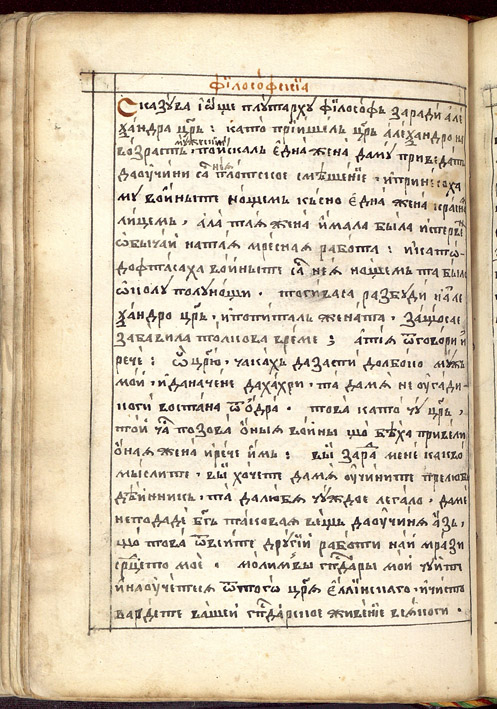 фїлосѡфскїѧ
Сказꙋва ї ѡ́ще плꙋтархꙋ фїлосѡфь заради але
ѯандра цр҃ѧ : като прїишель цр҃ь алеѯандро на
мꙋжескїи
возрасть, поискаль една жена даму приведатъ
даѹчини са неѧ плотское смѣшенїе, и принесоха
мꙋ воините нощемь късно една жена красна
лицемь, ала таѧ жена имала была испервѣ
ѡбычаи на таѧ мресная работа : и като
дофтасаха воините са неѧ нощемь та было
ѡколꙋ полꙋнощи . тогива са разбꙋди алеѯ
ѯандро цр҃ь, и попиталь жената, защо се
забавила толкова време ; а тїѧ ѿговори и
рече : ѡ҆ цр҃ю, чакахь да заспи дълбоко мꙋжъ
мои, и да начене да хахри, та да мѧ не ѹгади
коги востана ѿ ѻдра . това като чꙋ цр҃ь,
той час позова ѻныѧ войны що бѣха привели
ѻнаѧ жена и рече имь : вы заради мене какво
мыслите, вы хочете да мѧ ѹчините прелюбо
дѣйнникъ, та да любѧ чꙋждое легало, да ме
не подаде бг҃ъ таковая вещь да ѹчинѧ азь,
що това ѿ всите дрꙋгїи работи най мрази
ср҃цето мое . молим вы гпⷭ҇дары мои чꙋйте
и наѹчетесѧ ѿ того цр҃ѧ еллинскаго, и чисто
вардете вашей гпⷭ҇дарское живенїе всѧкоги .